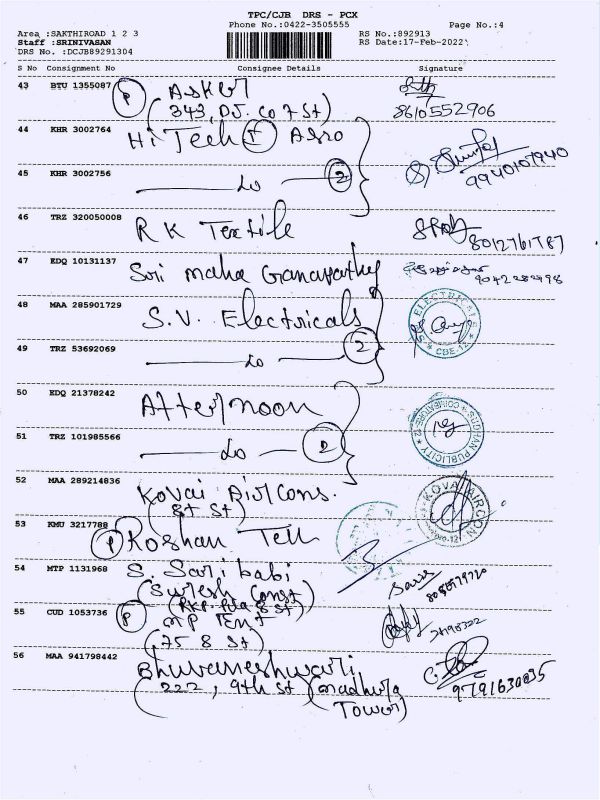 TPC/CJB DRS - PCX
Phone No.:0422-3505555
Page No.:4
Area :SAKTHIROAD 1 2 3
RS No.:892913
Staff :SRINIVASAN
RS Date:17-Feb-2022
DRS No. :DCJB89291304
S No Consignment No Consignee Details Signature
43 BTU 1355087 P Asker
(343, DJ. Co 7 St)
8610552906
44 KHR 3002764 Hi Tech Asso
45 KHR 3002756 do 2
9940107940
46 TRZ 320050008 R K Textile
8012761787
47 EDQ 10131137 Sri maha Ganapathy
9042282498
48 MAA 285901729 S.V. Electricals
S.V. ELECTRICALS CBE-12
49 TRZ 53692069 do 2
50 EDQ 21378242 Afternoon
PUBLICITY COIMBATORE-12
51 TRZ 101985566 do 2
52 MAA 289214836 Kovai Aircons.
(8t St)
KOVAI AIRCON
53 KMU 3217788 P Roshan Tex
54 MTP 1131968 S. Sari babi
(Suresh Const)
55 CUD 1053736 P MP Ent
(75 8 St)
56 MAA 941798442 Bhuvaneshwari
(222, 9th St) (madhura
Tower)
9791630835